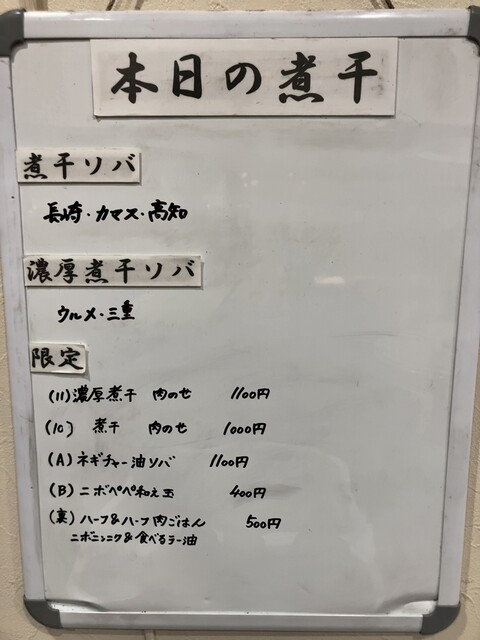 本日の煮干
煮干ソバ
長崎・カマス・高知
濃厚煮干ソバ
ウルメ・三重
限定
(11)濃厚煮干 肉のせ 1100円
(10) 煮干 肉のせ 1000円
(A) ネギチャー油ソバ 1100円
(B) ニボペペ和え玉 400円
(裏) ハーフ&ハーフ肉ごはん 500円
ニボニンニク&食べるラー油